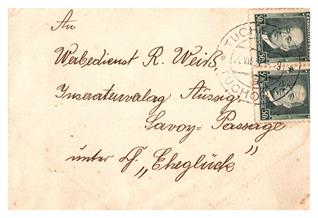 An
Werbedienst R. Weiß
Inseratenverlag Aussig
Savoy=Passage
unter D. "Eheglück"
50
50
TUCH
TUCHO